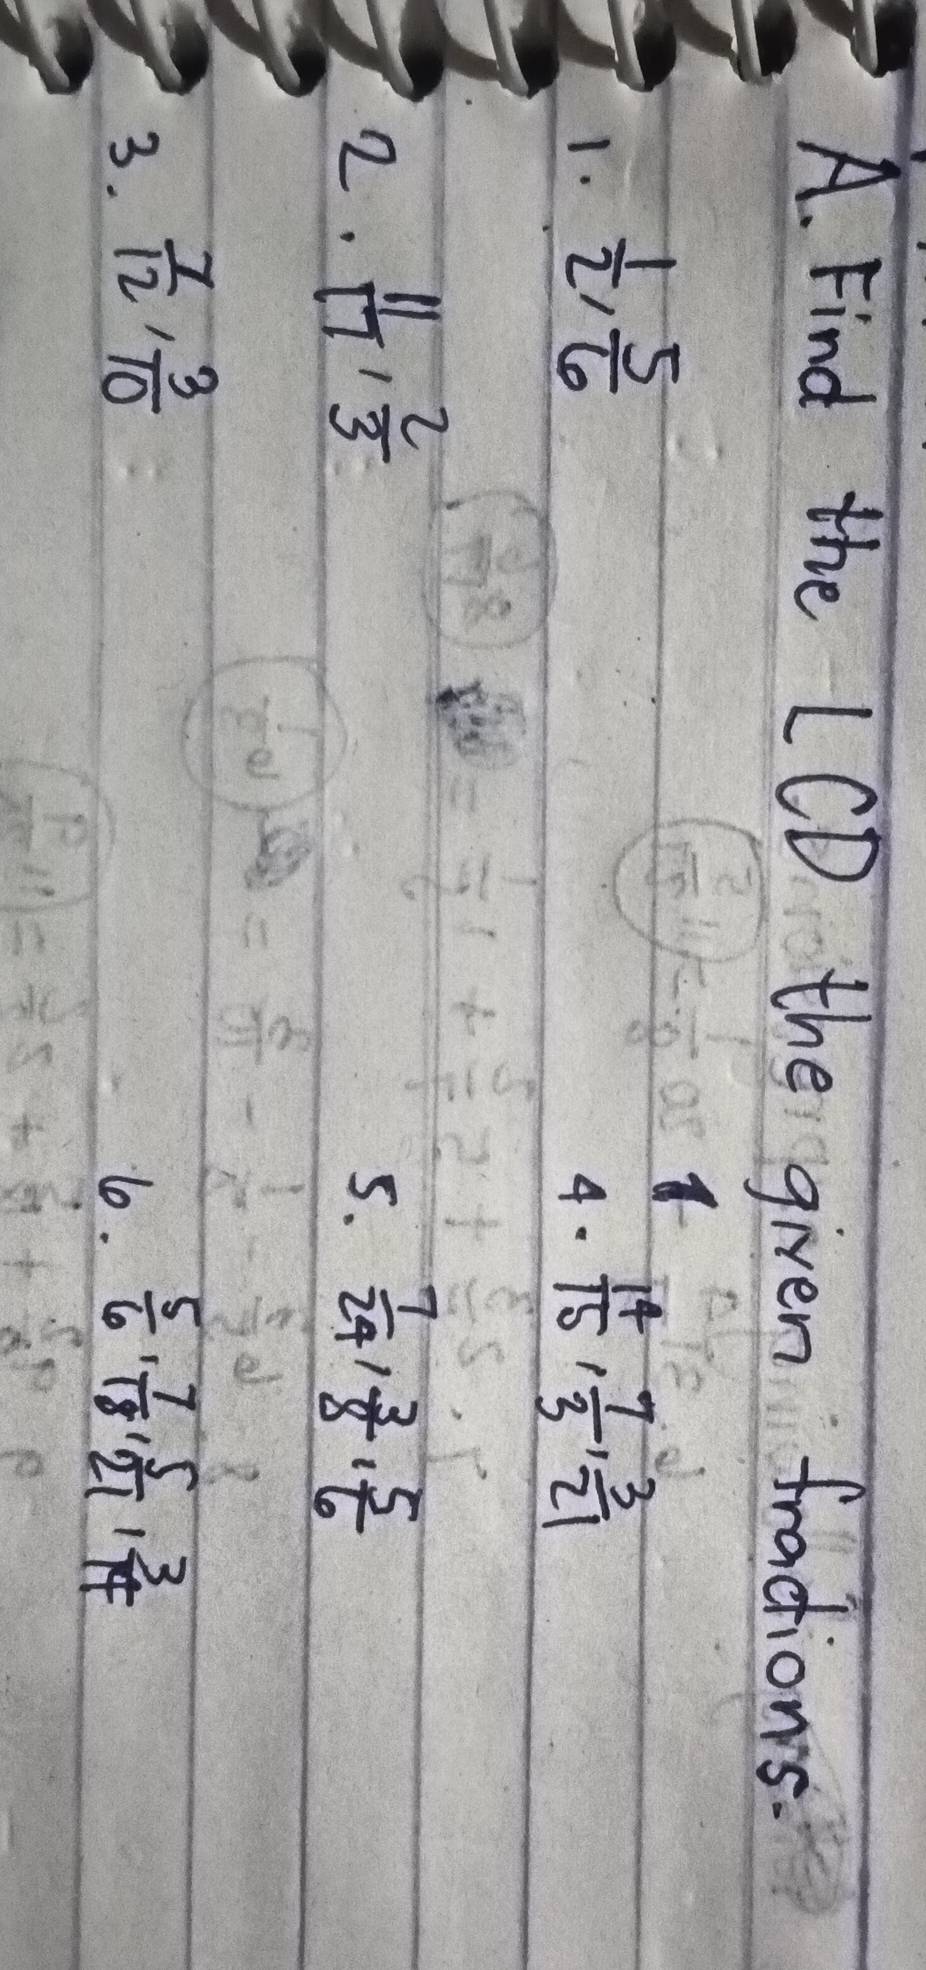 A. Find the LCD the given fractions.
1. 1/2, 5/6
2. 11/17, 2/3
3. 7/12, 3/10
4. 14/15, 7/3, 3/21
5. 7/24, 3/8, 5/6
6. 5/6, 7/18, 5/21, 3/14